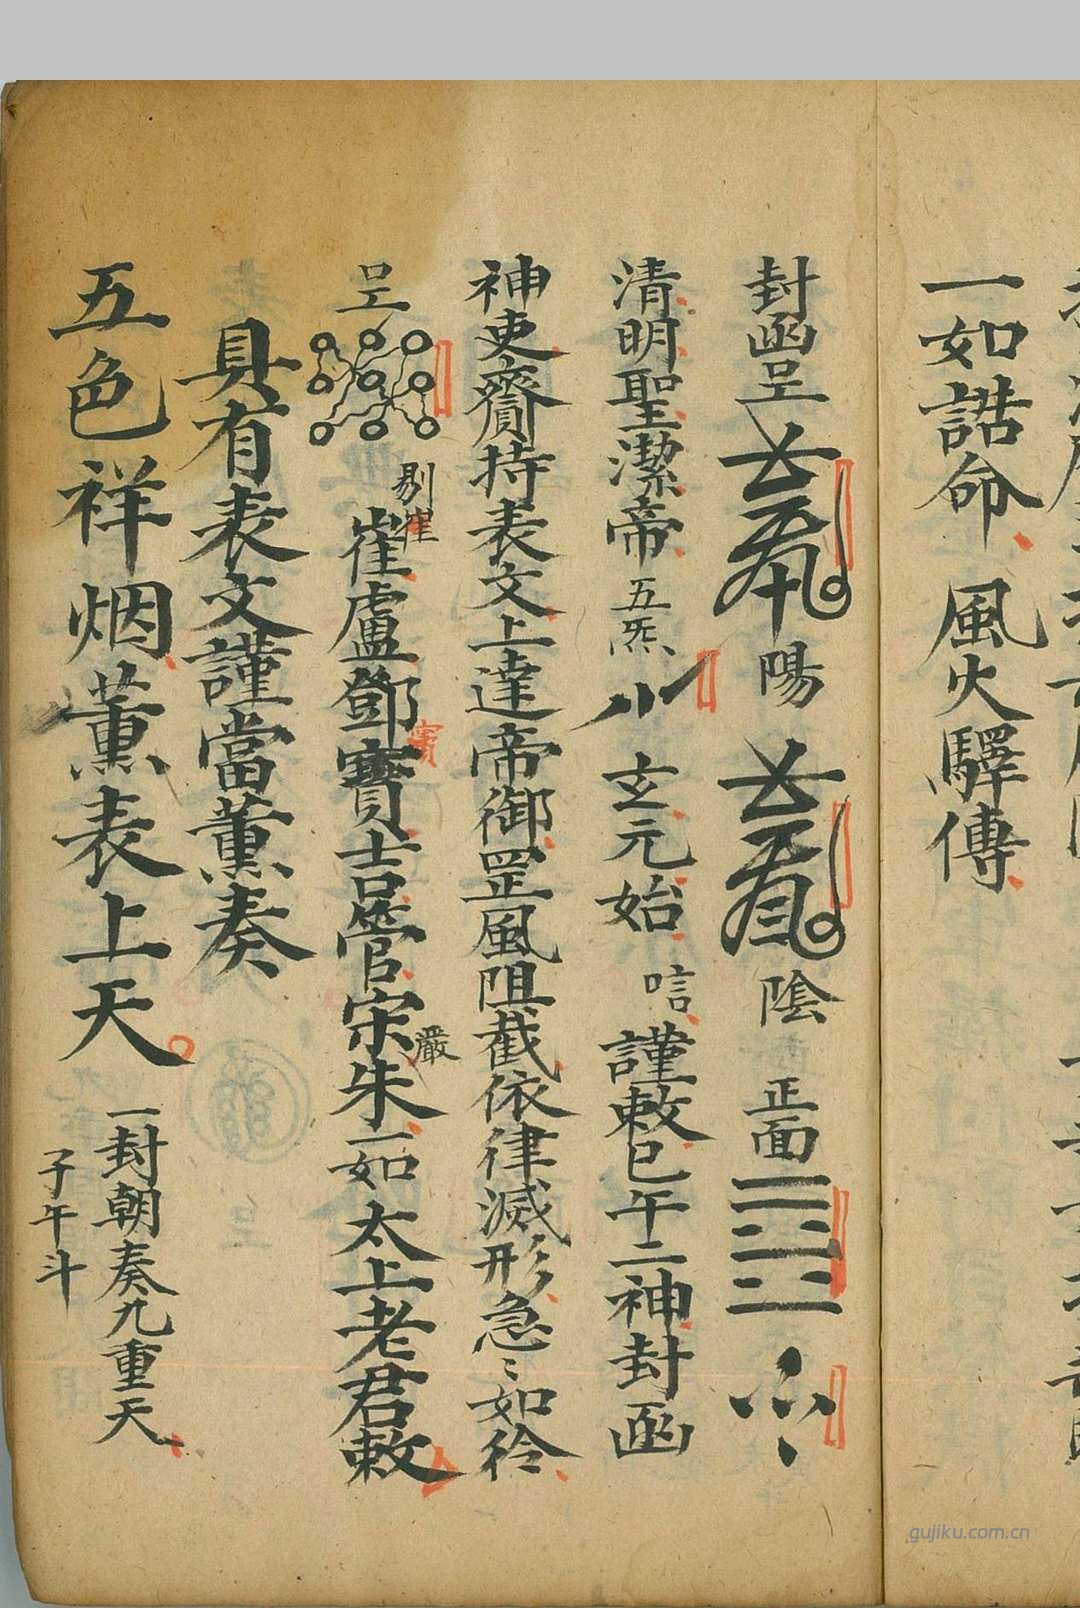 一如誥命風火驛傳
封函㞷 陽 陰 正面
清明聖潔帝 五炁 玄元始 唁 謹敕巳午二神封函
神吏齎持表文上達帝御罡風阻截依律滅形急〻如
崔盧鄧寶吉管宋朱一如太上老君敕
剔崔
賓
嚴
具有表文謹當薰奏
五色祥烟薰表上天 一封朝奏九重天
子午斗
gujiku.com.cn